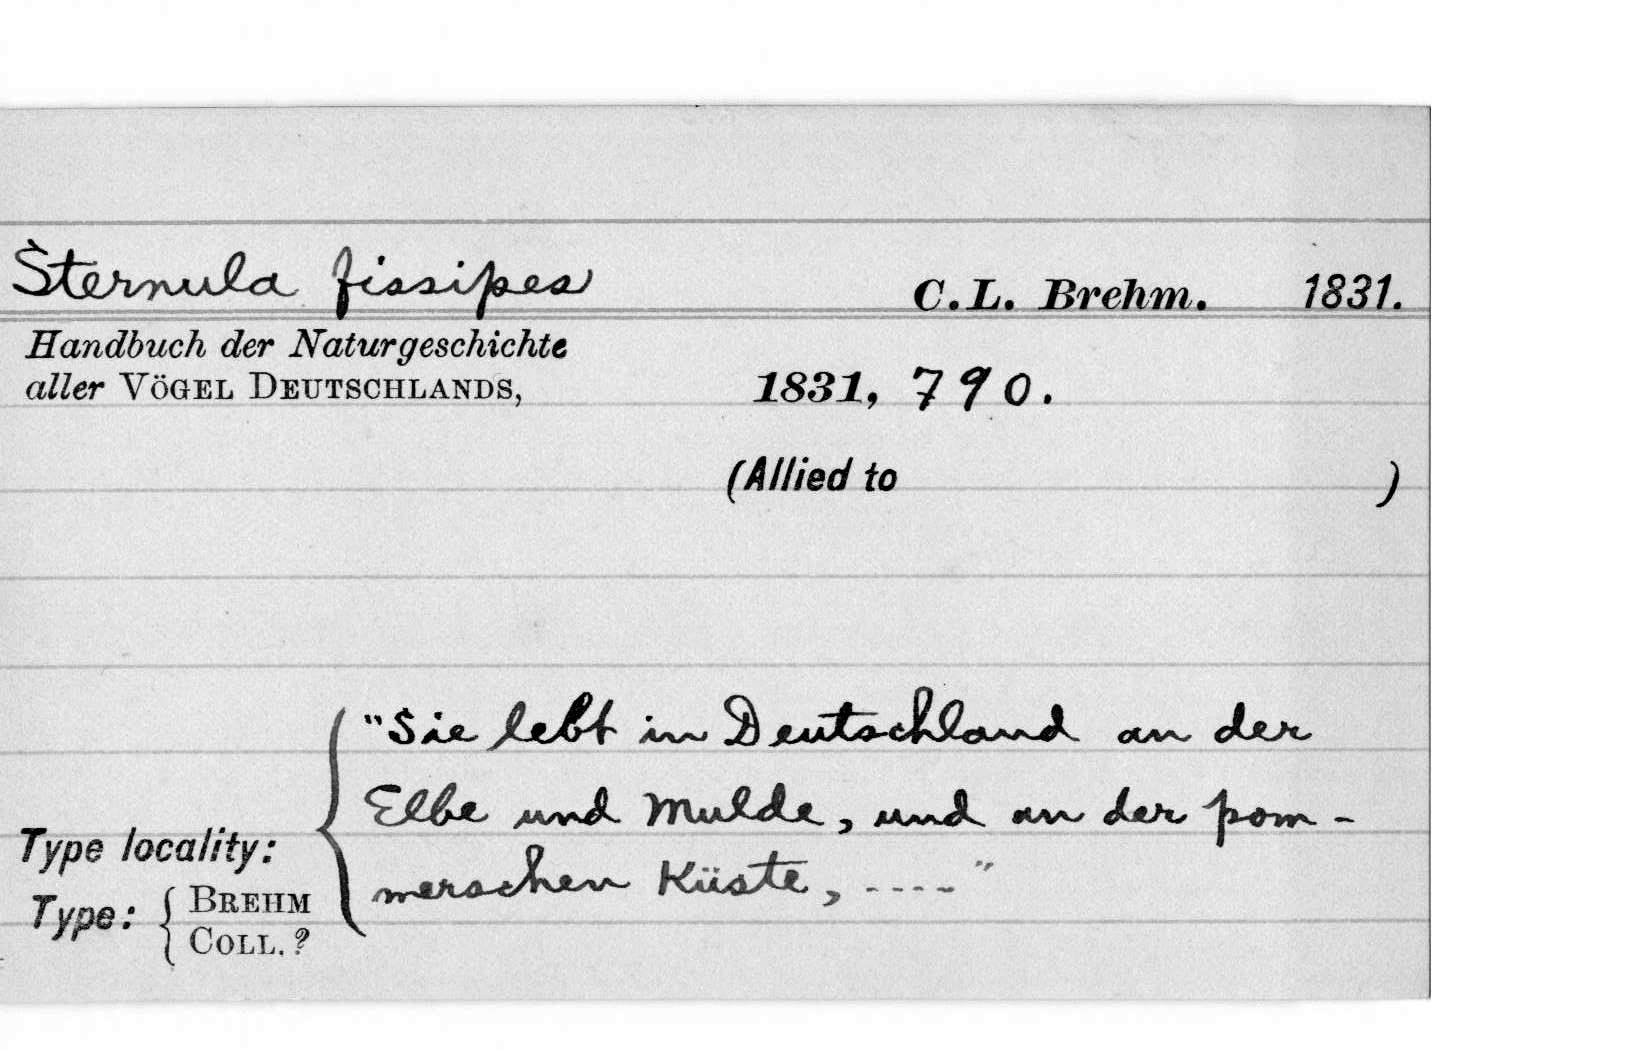 Sternula fissipes C.L. Brehm. 1831.
Handbuch der Naturgeschichte
aller VÖGEL DEUTSCHLANDS, 1831, 790.
(Allied to )
"Sie lebt in Deutschland an der
Elbe und Mulde, und an der pom-
merschen Küste, ----"
Type locality:
Type: { BREHM
COLL. ?